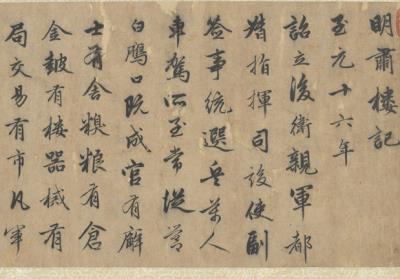 明肅樓記
至元十六年
詔立後衛親軍都
指揮司設使副
簽事統選兵萬人
車駕所至常從營
白鴈口既成官有廨
士有舍糗粮有倉
金鼓有楼器械有
局交易有市凡軍